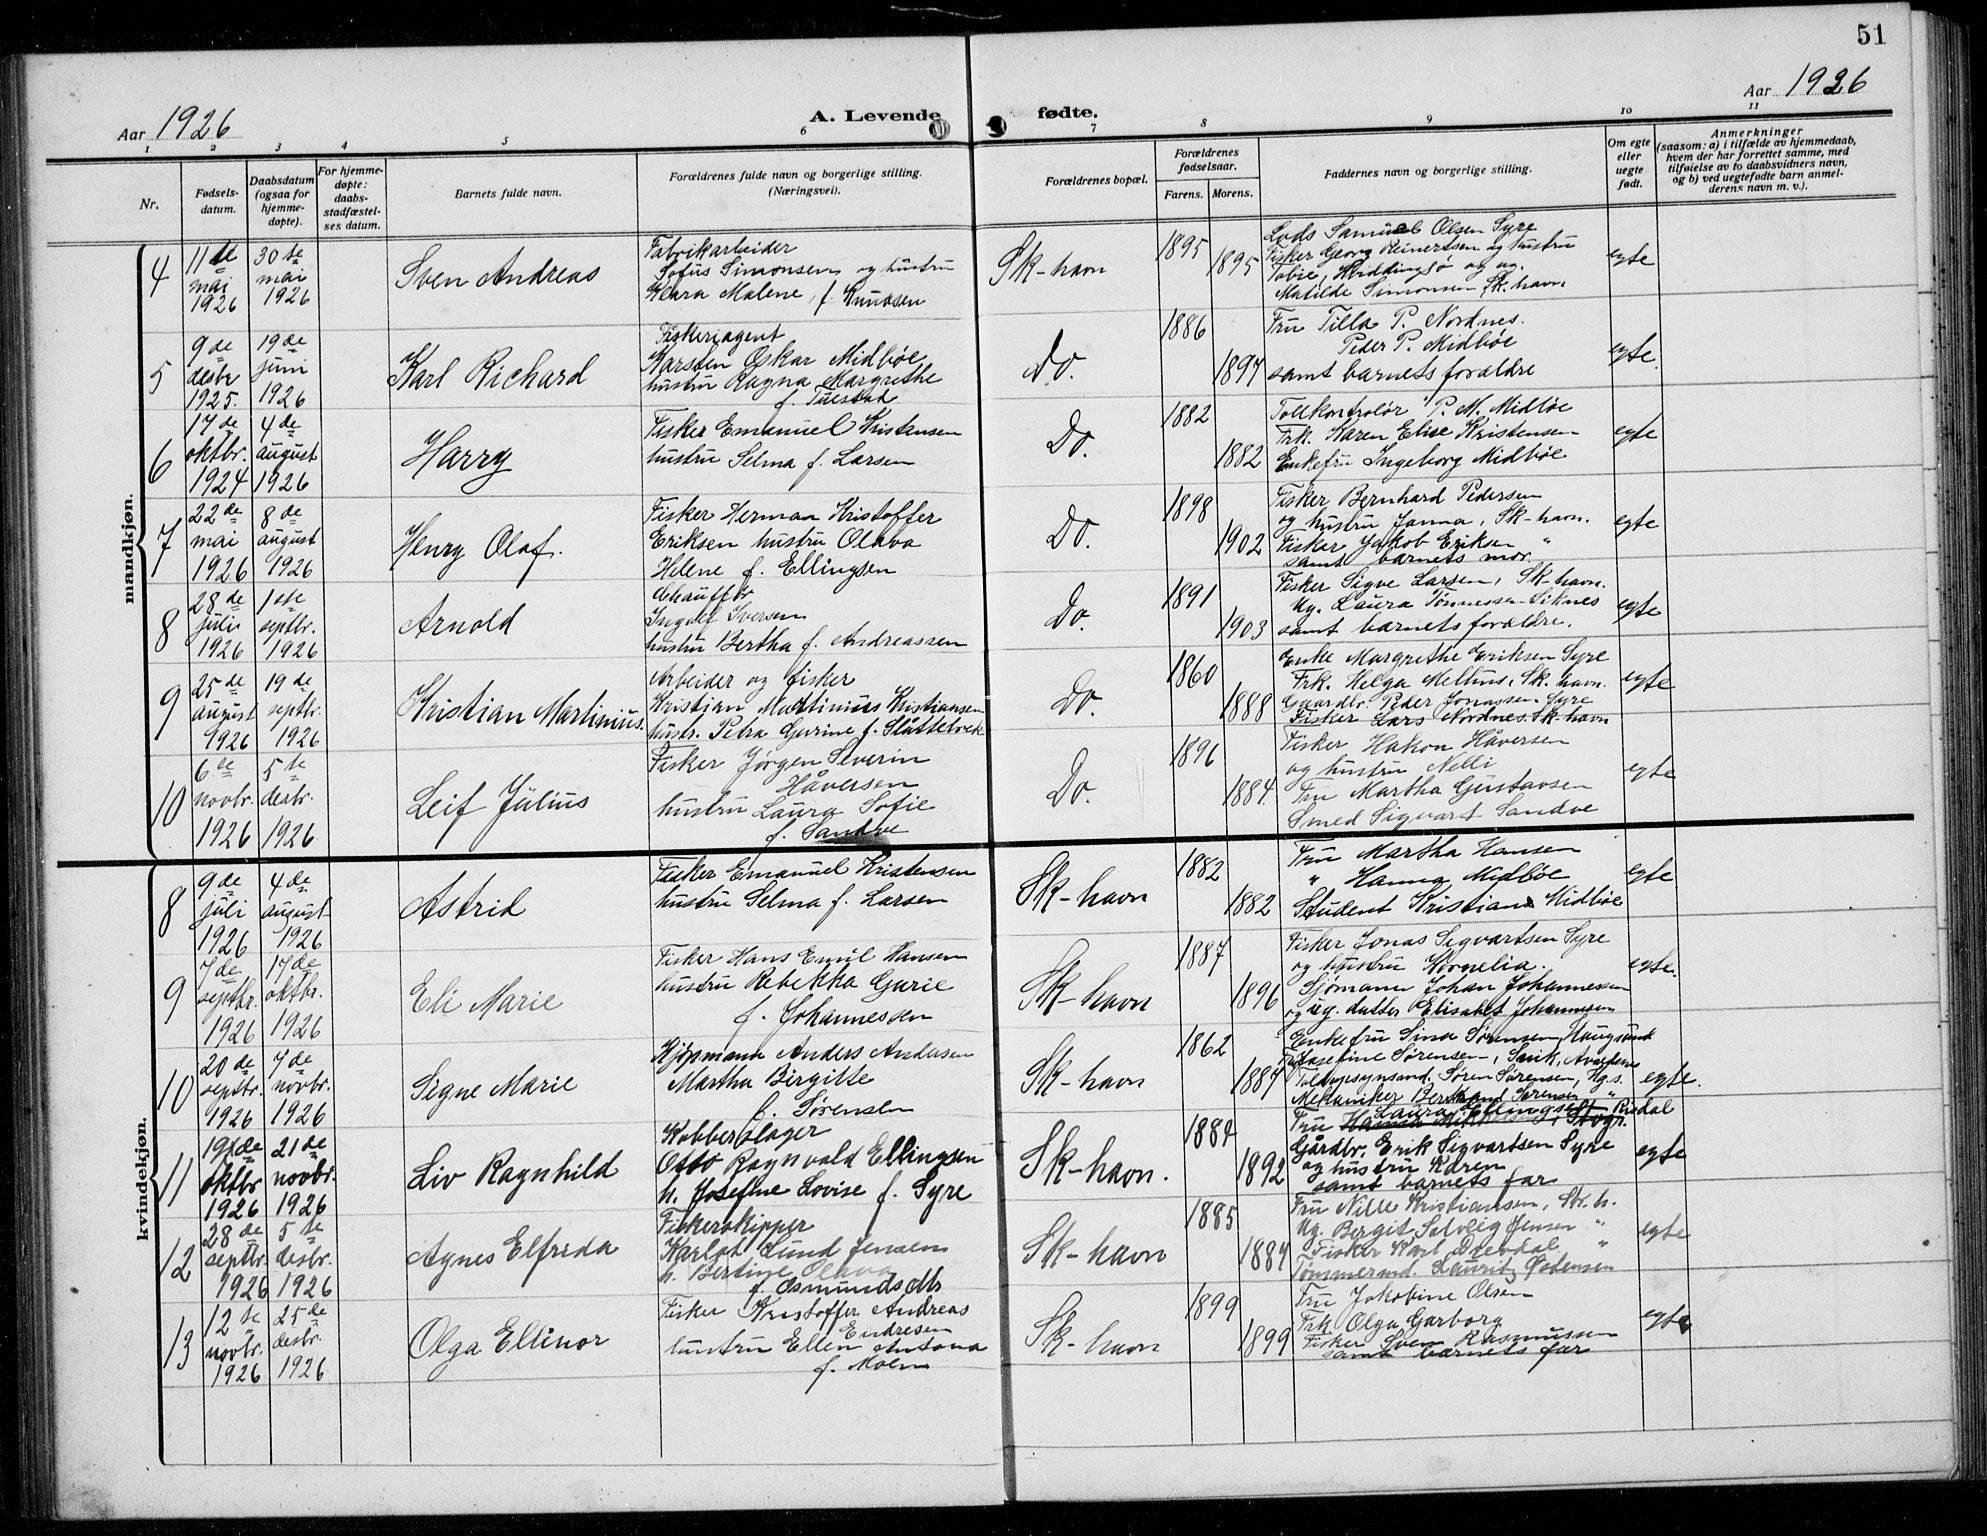 51
Aar 1926
A. Levende fødte.
Aar 1926
1 2 3 4 5 6 7 8 9 10 11
Nr.
Fødsels-
datum.
Daabsdatum
(ogsaa for
hjemme-
døpte).
For hjemme-
døpte:
daabs-
stadfæstel-
ses datum.
Barnets fulde navn.
Forældrenes fulde navn og borgerlige stilling.
(Næringsvei).
Forældrenes bopæl.
Forældrenes
fødselsaar.
Farens. Morens.
Faddernes navn og borgerlige stilling.
Om egte
eller
uegte
født.
Anmerkninger
(saasom: a) i tilfælde av hjemmedaab,
hvem der har forrettet samme, med
tilføielse av to daabsvidners navn,
og b) ved uegtefødte barn anmel-
derens navn m. v.).
mandkjøn.
4
11te
mai
1926
30te
mai
1926
Sven Andreas
Fabrikarbeider
Sofus Simonsen og hustru
Klara Malene, f. Knudsen
Sk-havn
1895
1895
Lods Samuel Olsen Syre
Fisker Georg Reinertsen og hustru
Tobie, Kviddingsø og ug.
Matilde Simonsen Sk.havn
egte
5
9de
desbr
1925.
19de
juni
1926
Karl Richard
Fiskeriagent
Karsten Oskar Midbøe
hustru Ragna Margrethe
f. Tuestad
Do.
1886
1897
Fru Tilla P. Nordnes.
Peder P. Midbøe
samt barnets forældre
egte.
6
17de
oktbr.
1924
4de
august
1926
Harry
Fisker Emanuel Kristensen
hustru Selma f. Larsen
Do.
1882
1882
Tollkontrolør P. M. Midbøe
Frk. Karen Elise Kristensen
Enkefru Ingeborg Midbøe
egte
7
22de
mai
1926
8de
august
1926
Henry Olaf.
Fisker Herman Kristoffer
Eriksen hustru Olava
Helene f. Ellingsen
Do.
1898
1902
Fisker Bernhard Pedersen
og hustru Janna, Sk-havn.
Fisker Jakob Eriksen "
samt barnets mor.
egte
8
28de
juli
1926
1ste
septbr.
1926
Arnold
Chauffør
Ingolf Iversen
hustru Bertha f. Andreassen
Do.
1891
1903
Fisker Sigve Larsen, Sk-havn.
Ug. Laura Tønnessen-Siknes
samt barnets forældre.
egte
9
25de
august
1926
19de
septbr.
1926
Kristian Martinius.
Arbeider og fisker
Kristian Martinius Kristiansen
hustr. Petra Gurine f. Slåttebrek
Do.
1860
1888
Enke Margrethe Eriksen Syre
Frk. Helga Melhus, Sk. havn.
Gaardbr. Peder Jonassen Syre
Fisker Lars Nordnes. Sk-havn
egte
10
6te
novbr.
1926
5te
desbr.
1926
Leif Julius
Fisker Jørgen Severin
Håversen
hustru Laura Sofie
f. Sandve
Do.
1896
1884
Fisker Hakon Håversen
og hustru Nelli
Fru Martha Gustavsen
Smed Sigvart Sandve
egte
kvindekjøn.
8
9de
juli
1926
4de
august
1926
Astrid
Fisker Emanuel Kristensen
hustru Selma f. Larsen
Sk-havn
1882
1882
Fru Martha Hansen
" Hanna Midbøe
Student Kristian Midbøe
egte
9
7de
septbr.
1926
17de
oktbr.
1926
Eli Marie
Fisker Hans Emil Hansen
hustru Rebekka Gurie
f. Johannessen
Sk-havn
1887
1896
Fisker Jonas Sigvartsen Syre
og hustru Kornelia.
Sjømann Johan Johannessen
og ug. datter Elisabet Johannessen
egte.
10
20de
septbr.
1926
7de
novbr.
1926
Signe Marie
Kjøpmann Anders Andasen
Martha Birgitte
f. Sørensen
Sk-havn
1862
1887
Enkefru Sina Sørensen, Haugesund
Josefine Sørensen,
Toldopsynsmd. Søren Sørensen, Hgs.
Mekaniker Berthrand Sørensen "
egte.
11
19de
oktbr
1926
21de
novbr.
1926
Liv Ragnhild
Kobberslager
Otto Ragnvald Ellingsen
h. Josefine Lovise f. Syre
Sk-havn.
1884
1892
Laura Ellingsen, Risdal
Fru
Gårdbr. Erik Sigvartsen Syre
og hustru Karen
samt barnets far
egte
12
28de
septbr.
1926
5te
desbr.
1926
Agnes Elfrida
Fiskerskipper
Karlot Lund Jensen
h. Bertine Olava
f. Osmundsdtr
Sk-havn
1885
1884
Fru Nille Kristiansen, Sk. h.
Ug. Bergit Solveig Jensen "
Fisker Karl Drevdal "
Tømmermd. Lauritz Pedersen
egte
13
12te
novbr.
1926
25de
desbr.
1926
Olga Ellinor
Fisker Kristoffer Andreas
Endresen
hustru Ellen Antona
f. Moen
Sk-havn
1899
1899
Fru Jakobine Olsen
Frk Olga Garborg
Fisker Sven Rasmussen
samt barnets far
egte